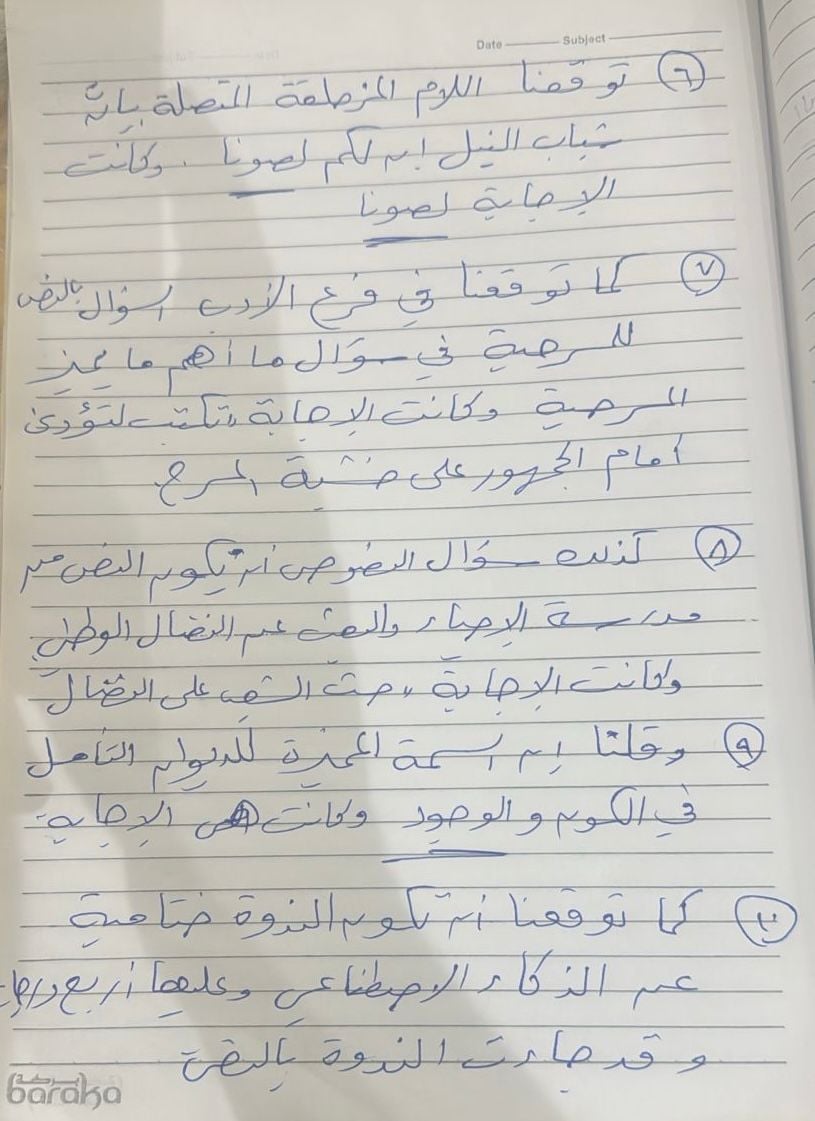 Date Subject
٦ توقعنا اللام المزحلقة المتصلة بإنّ
شباب النيل إن لكم لصونا . وكانت
الإجابة لصونا
٧ كما توقعنا في فرع الأدب السؤال بالنص
للمسرحية في سؤال ما أهم ما يميز
المسرحية وكانت الإجابة " تكتب لتؤدى
أمام الجمهور على خشبة المسرح
٨ كذلك سؤال النصوص أن يكون النص من
مدرسة الإحياء والبعث عن النضال الوطني
وكانت الإجابة " حث الشعب على النضال
٩ وقلنا إن السمة المميزة للديوان التأمل
في الكون والوجود وكانت هي الإجابة
١٠ كما توقعنا أن تكون الندوة ختامية
عن الذكاء الاصطناعي وعليها أربع درجات
وقد جاءت الندوة بالنص
baraka